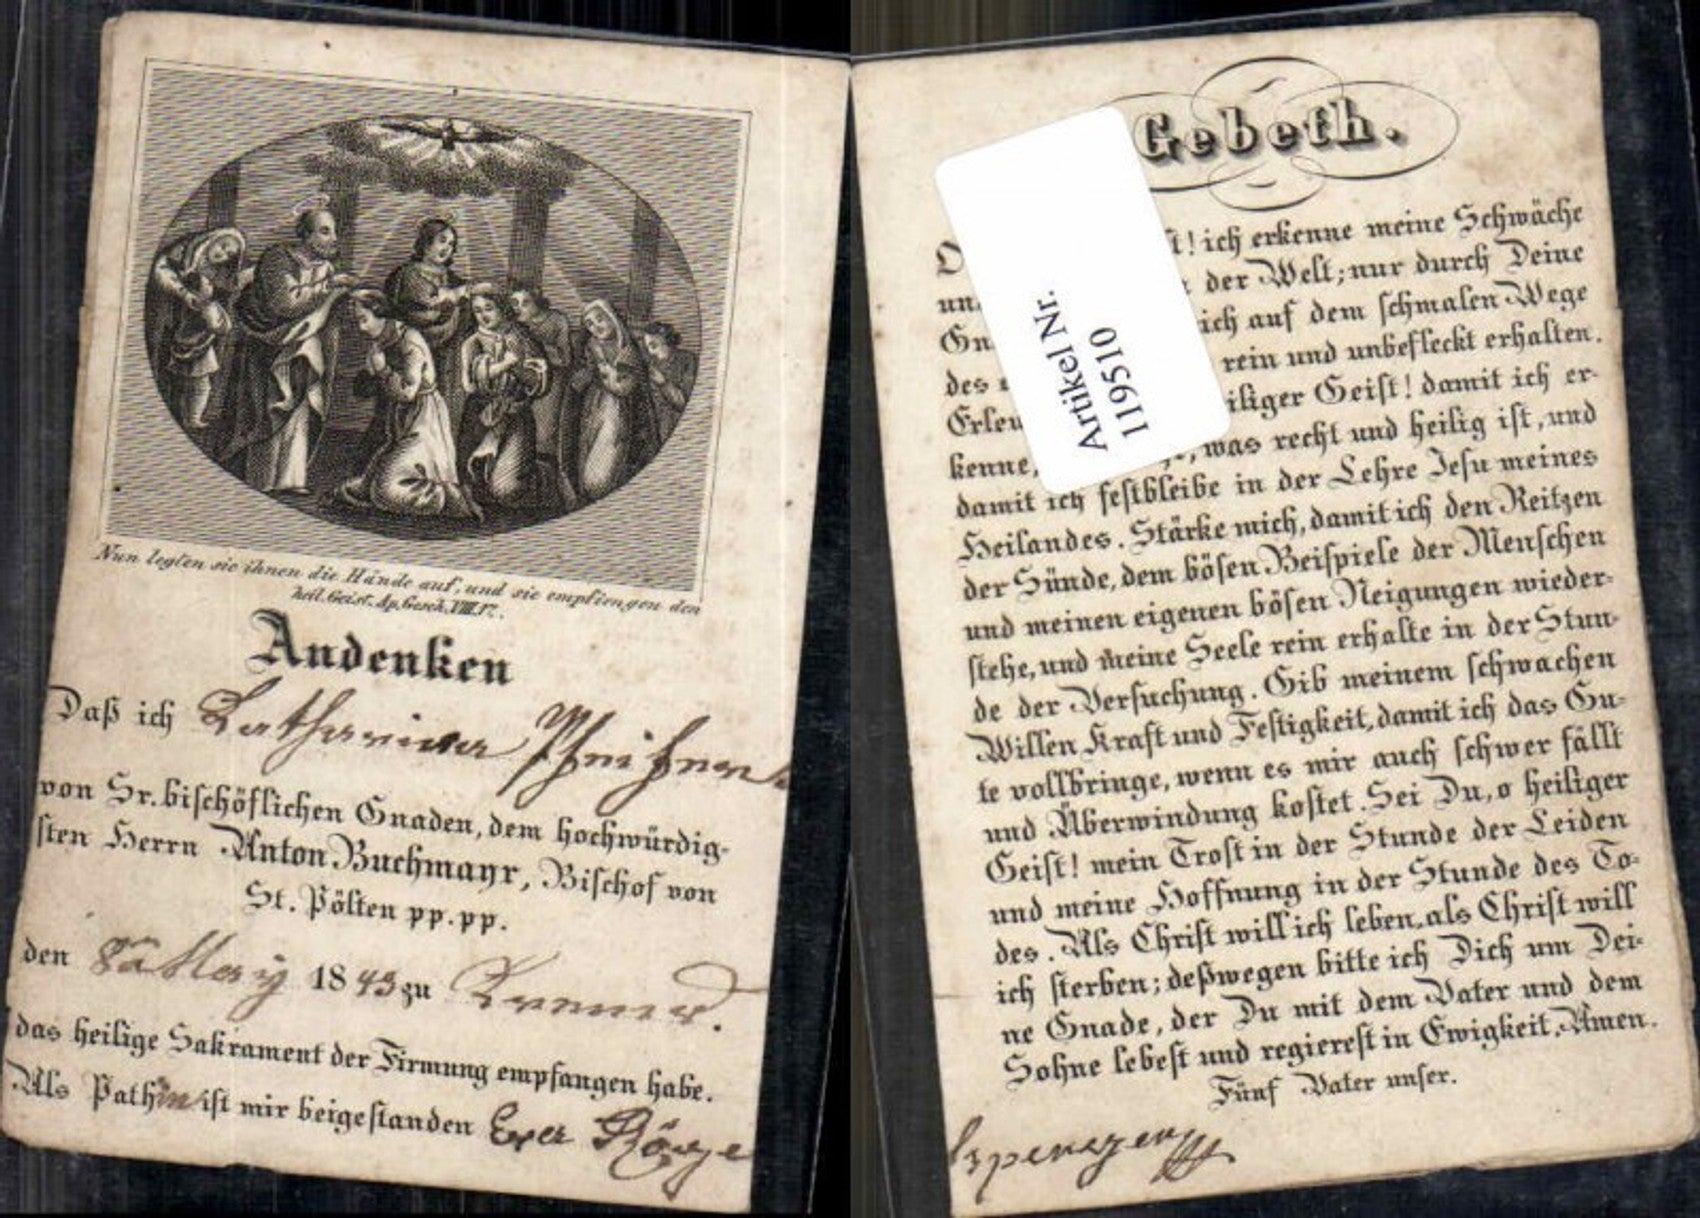 Nun legten sie ihnen die Hände auf, und sie empfiengen den
heil. Geist. Ap. Gesch. VIII. 17.
Andenken
Daß ich Katharina
von Sr. bischöflichen Gnaden, dem hochwürdig-
sten Herrn Anton Buchmayr, Bischof von
St. Pölten pp. pp.
den 18 43 zu
das heilige Sakrament der Firmung empfangen habe.
Als Pathin ist mir beigestanden
Gebeth.
Artikel Nr.
119510
! ich erkenne meine Schwäche
der Welt; nur durch Deine
ich auf dem schmalen Wege
des rein und unbefleckt erhalten.
Geist! damit ich er-
kenne, was recht und heilig ist, und
damit ich festbleibe in der Lehre Jesu meines
Heilandes. Stärke mich, damit ich den Reitzen
der Sünde, dem bösen Beispiele der Menschen
und meinen eigenen bösen Neigungen wieder-
stehe, und meine Seele rein erhalte in der Stun-
de der Versuchung. Gib meinem schwachen
Willen Kraft und Festigkeit, damit ich das Gu-
te vollbringe, wenn es mir auch schwer fällt
und Überwindung kostet. Sei Du, o heiliger
Geist! mein Trost in der Stunde der Leiden
und meine Hoffnung in der Stunde des To-
des. Als Christ will ich leben, als Christ will
ich sterben; deßwegen bitte ich Dich um Dei-
ne Gnade, der Du mit dem Vater und dem
Sohne lebest und regierest in Ewigkeit, Amen.
Fünf Vater unser.